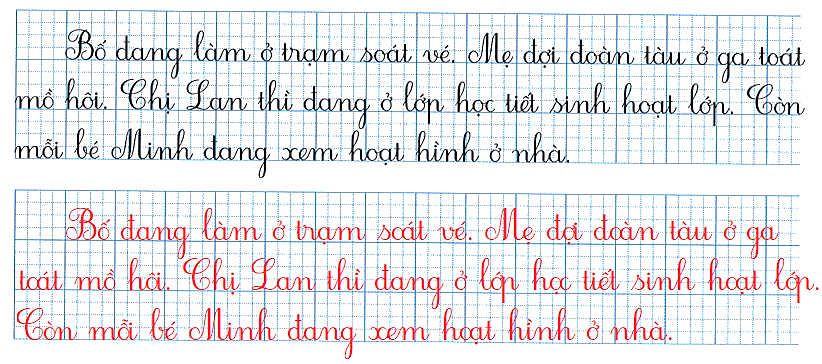 Bố đang làm ở trạm soát vé. Mẹ đợi đoàn tàu ở ga toát
mồ hôi. Chị Lan thì đang ở lớp học tiết sinh hoạt lớp. Còn
mỗi bé Minh đang xem hoạt hình ở nhà.
Bố đang làm ở trạm soát vé. Mẹ đợi đoàn tàu ở ga
toát mồ hôi. Chị Lan thì đang ở lớp học tiết sinh hoạt lớp.
Còn mỗi bé Minh đang xem hoạt hình ở nhà.